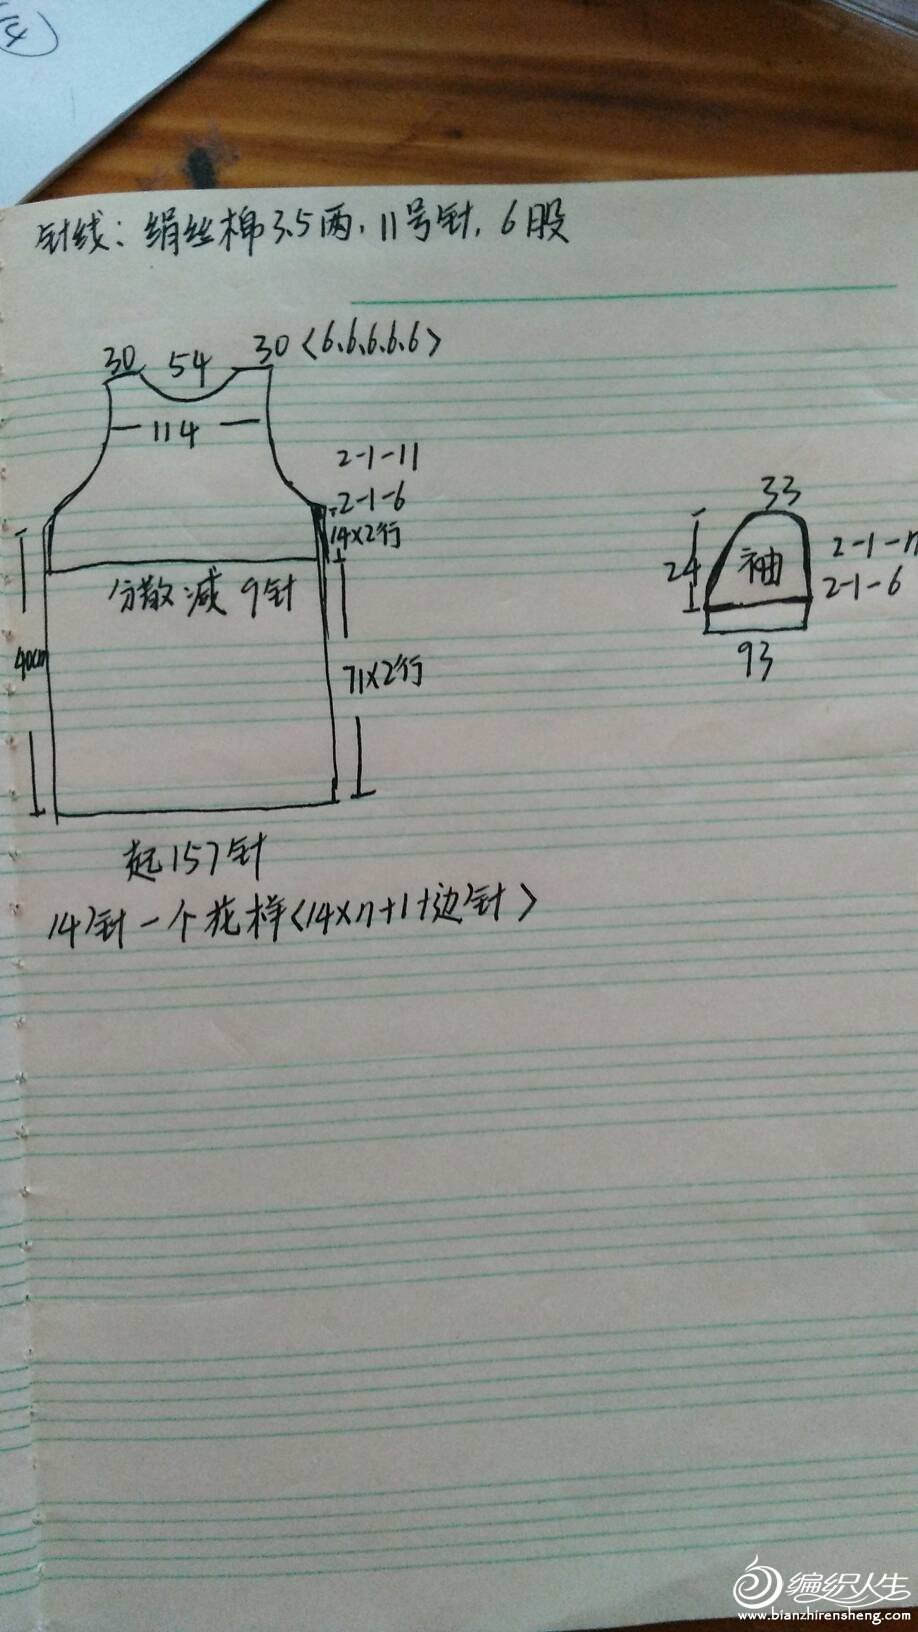 14
针线：绢丝棉3.5两，11号针，6股
30 54 30〈6、6、6、6、6〉
114
2-1-11
2-1-6
14×2行
分散减9针
40cm
71×2行
起157针
14针一个花样〈14×n+1+边针〉
33
24
袖
2-1-6
93
编织人生
www.bianzhirensheng.com